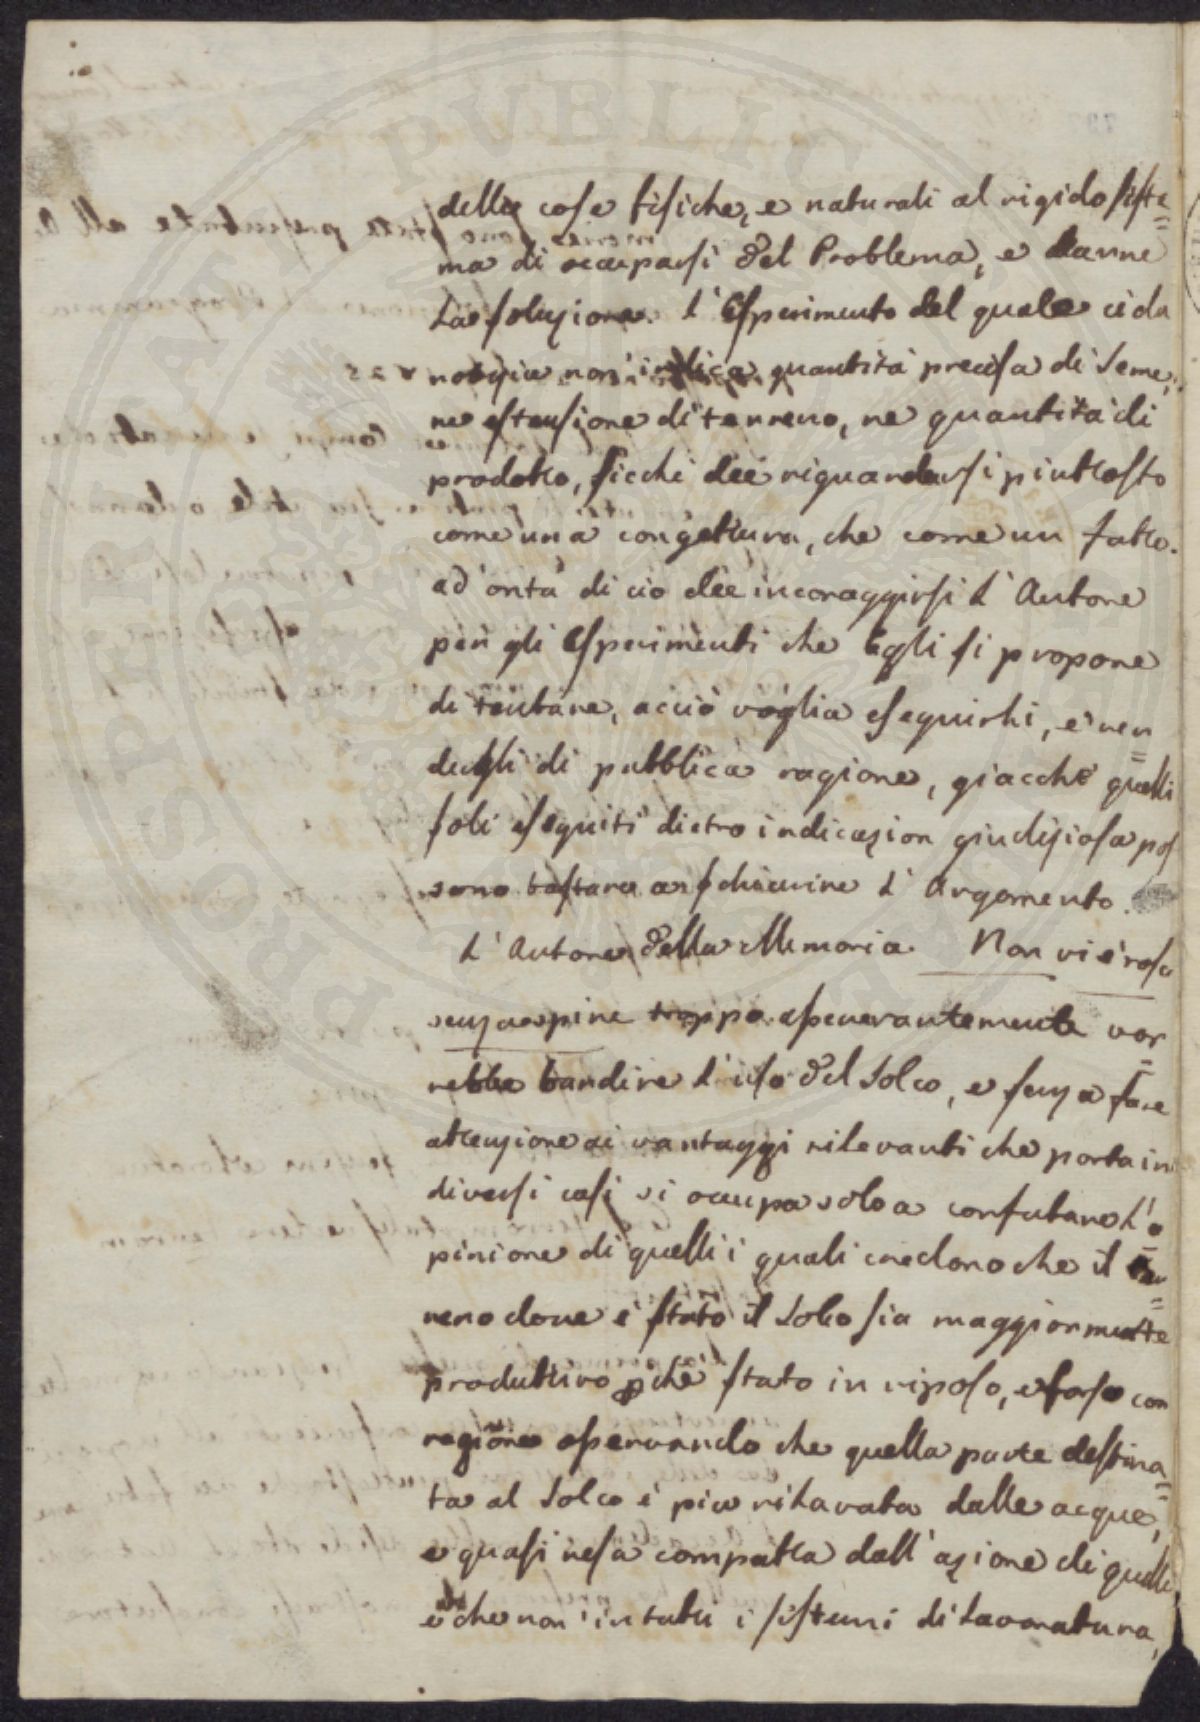 delle cose fisiche, e naturali al rigido siste=
ma di occuparsi del Problema, e darne
la soluzione. L'Esperimento del quale ci dà
notizia non indica quantità precisa di Seme,
ne estensione di terreno, ne quantità di
prodotto, sicchè dee riguardarsi piuttosto
come una congettura, che come un fatto.
ad onta di ciò dee incoraggirsi l'Autore
per gli Esperimenti che Egli si propone
di tentare, acciò voglia eseguirli, e ren=
dergli di pubblica ragione, giacchè quelli
soli eseguiti dietro indicazion giudiziosa pos
sono bastare a schiarire l'Argomento.
L'Autore della Memoria. Non vi è rosa
senza spine troppo esperantemente vor=
rebbe bandire l'uso del Solco, e senza fare
attenzione ai vantaggi rilevanti che porta in
diversi casi si occupa solo a confutare l'o=
pinione di quelli i quali credono che il ter=
reno dove è stato il Solco sia maggiormente
produttivo pchè stato in riposo, e forse con
ragione osservando che quella parte destina=
ta al Solco è piu rilavata dalle acque,
e quasi resa compatta dall'azione di quelle
e che non in tutti i sistemi di lavoratura,
PROSPERITATI PUBLICAE